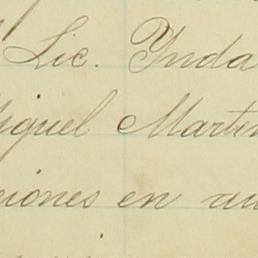 Lic. Ynda
iguel Martin
iones en au